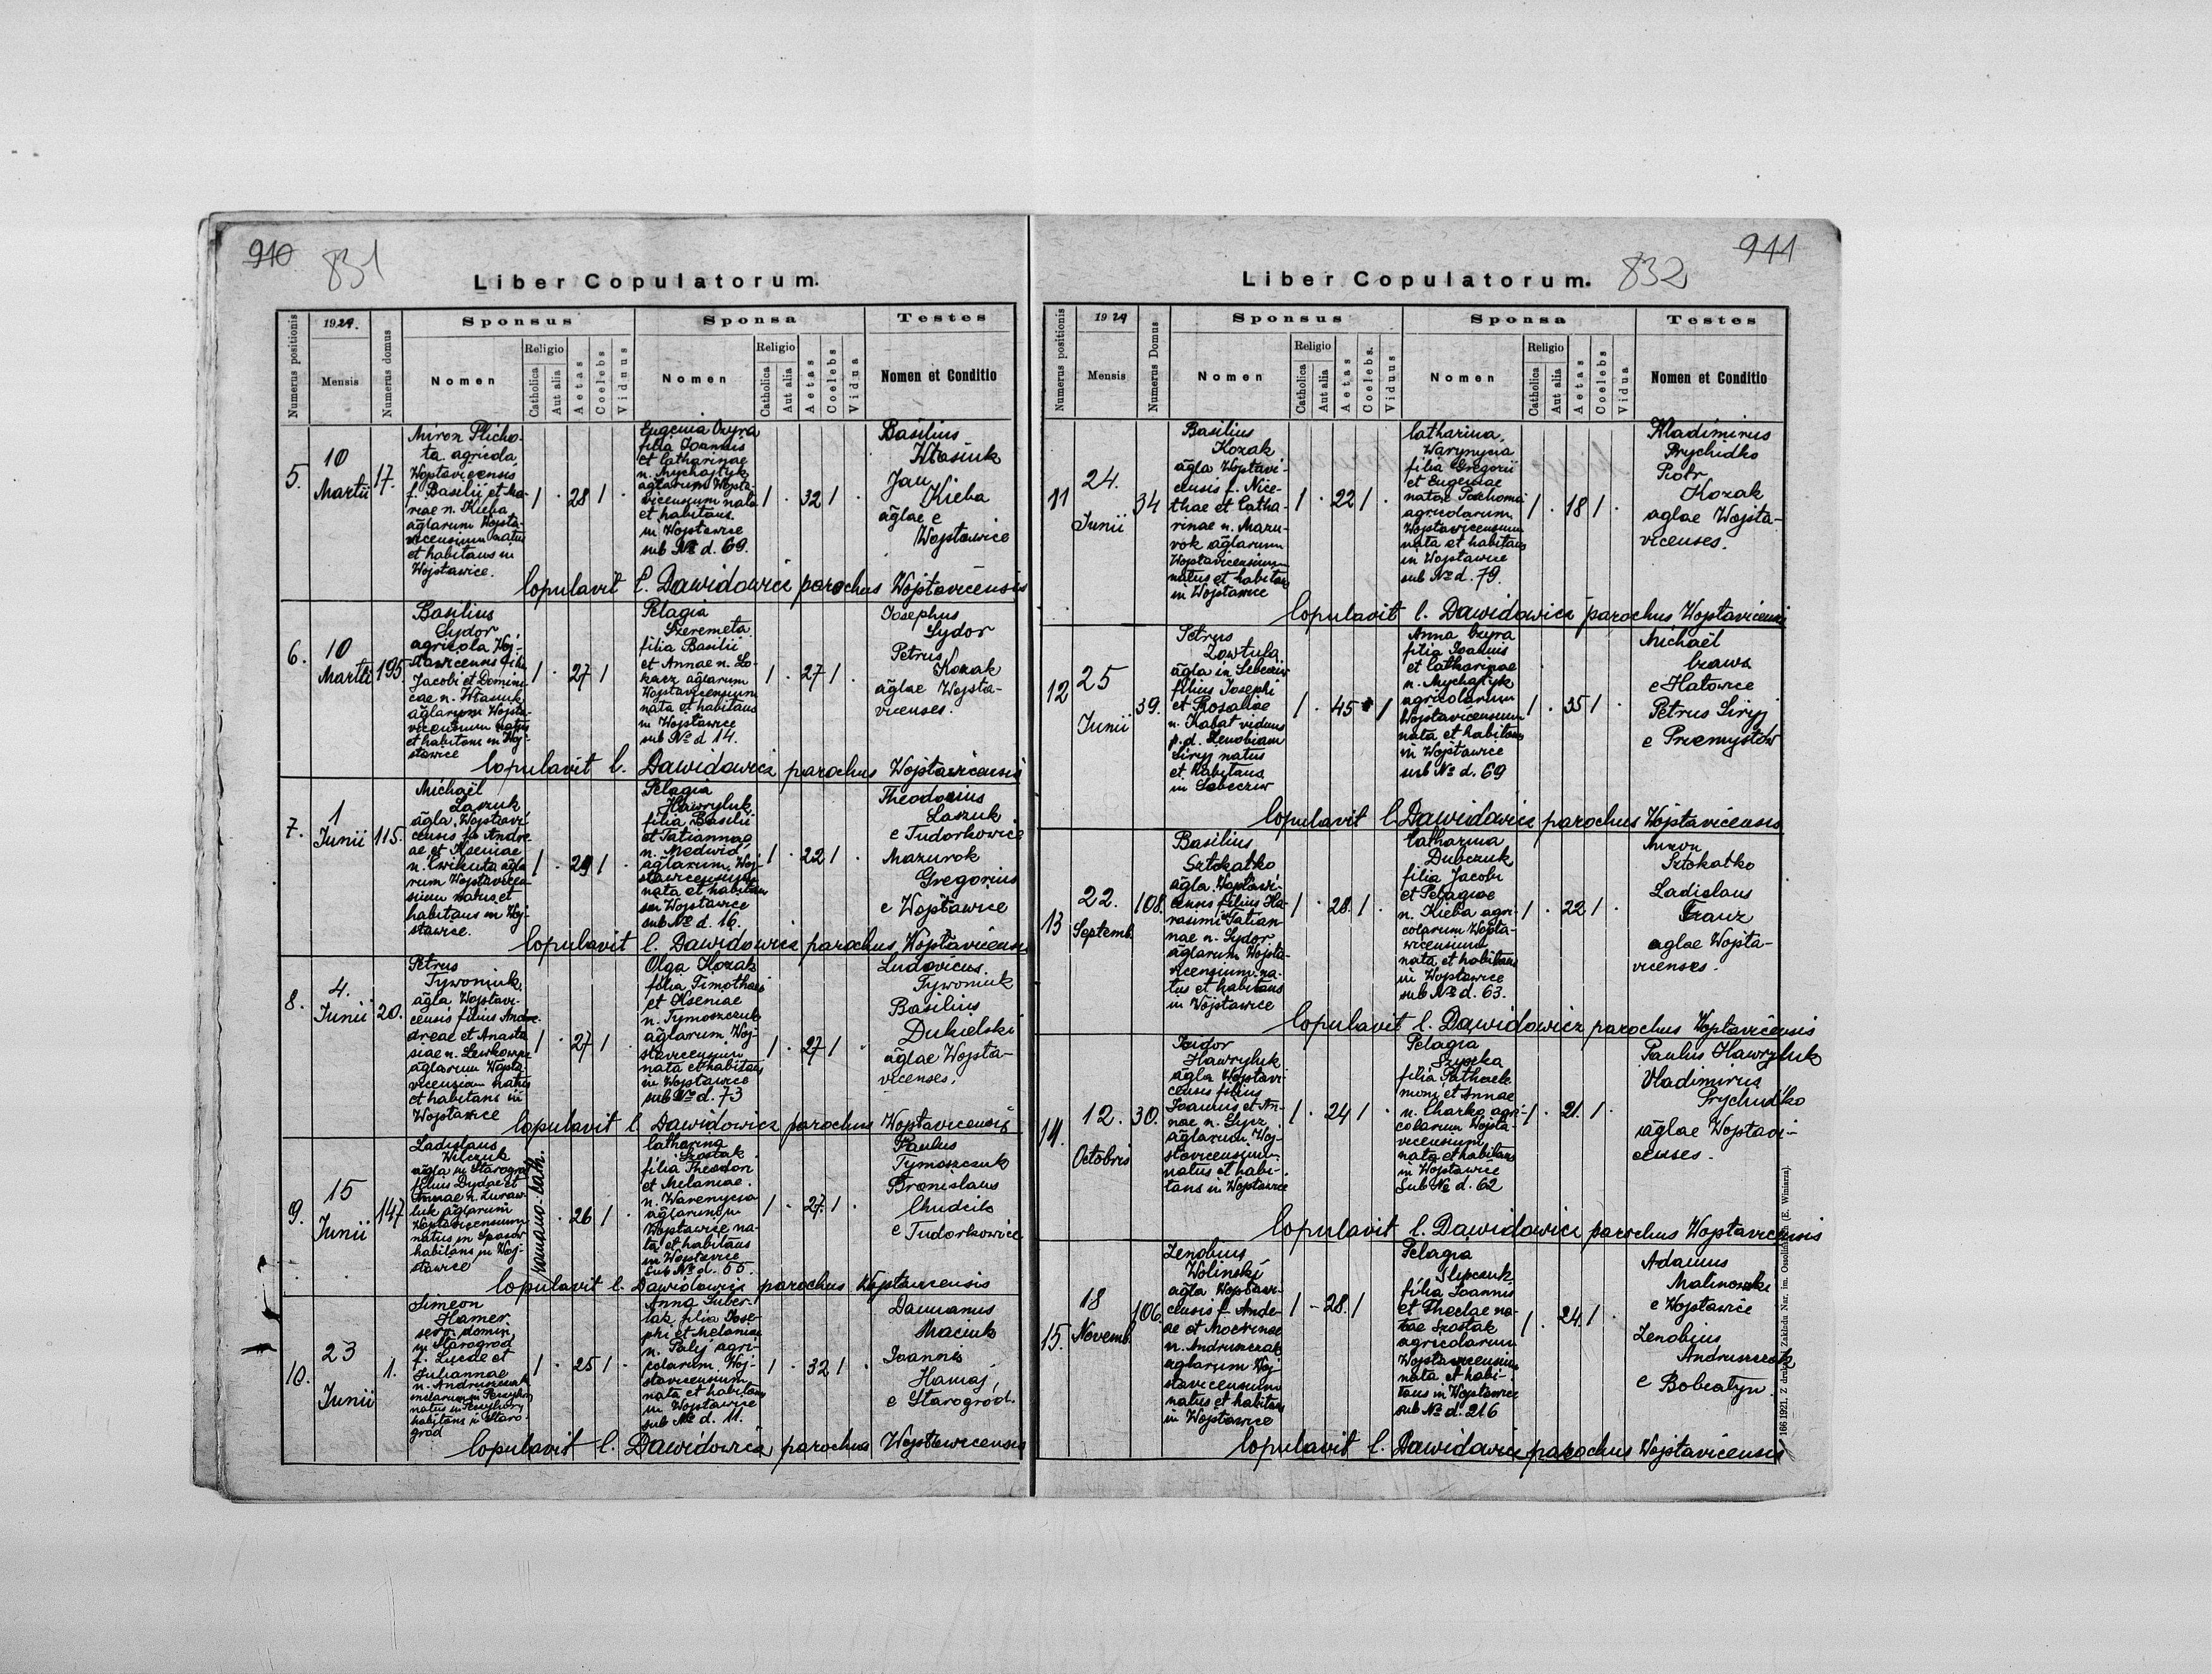 910 831
Liber Copulatorum.
Numerus positionis
1929.
Mensis
Numerus domus
Sponsus
Nomen
Religio
Catholica
Aut alia
Aetas
Coelebs
Viduus
Sponsa
Nomen
Religio
Catholica
Aut alia
Aetas
Coelebs
Vidua
Testes
Nomen et Conditio
5.
10
Martii
17.
Miron Plicho-
ta agricola
Wojstavicensis
f. Basilii et Ma-
riae n. Kieba
aglarum Wojsta-
vicensium natus
et habitans in
Wojsławice.
1 . 28 1 .
Eugenia Czyra
filia Joannis
et Catharinae
n. Mychajłyk
aglarum Wojsta-
vicensium nata
et habitans
in Wojsławice
sub No d. 69.
1 . 32 1 .
Basilius
Własiuk
Jan
Kieba
aglae e
Wojsławice
Copulavit C. Dawidowicz parochus Wojstavicensis
6.
10
Martii
195.
Basilius
Sydor
agricola Woj-
stavicensis filius
Jacobi et Domini-
cae n. Własiuk
aglarum Wojsta-
vicensium natus
et habitans in Woj-
sławice
1 . 27 1 .
Pelagia
Szeremeta
filia Basilii
et Annae n. Lo-
karz aglarum
Wojstavicensium
nata et habitans
in Wojsławice
sub No d 14.
1 . 27 1 .
Josephus
Sydor
Petrus
Kozak
aglae Wojsta-
vicenses.
Copulavit C. Dawidowicz parochus Wojstavicensis
7.
1
Junii
115.
Michaël
Laszuk
agla Wojstavi-
censis f. Andre-
ae et Kseniae
n. Ćwikuta agla-
rum Wojstavicen-
sium natus et
habitans in Woj-
sławice.
1 . 29 1 .
Pelagia
Hawryluk
filia Basilii
et Tatiannae
n. Medwid
aglarum Woj-
stavicensium
nata et habitans
in Wojsławice
sub No d. 16.
1 . 22 1 .
Theodosius
Laszuk
e Tudorkowice
Mazurok
Gregorius
e Wojsławice
Copulavit C. Dawidowicz parochus Wojstavicensis
8.
4.
Junii
20.
Petrus
Tywoniuk
agla Wojstavi-
censis filius An-
dreae et Anasta-
siae n. Lewkowicz
aglarum Wojsta-
vicensium natus
et habitans in
Wojsławice
1 . 27 1 .
Olga Kozak
filia Timothaei
et Kseniae
n. Tymoszczuk
aglarum Woj-
stavicensium
nata et habitans
in Wojsławice
sub No d. 73
1 . 27 1 .
Ludovicus
Tywoniuk
Basilius
Dukielski
aglae Wojsta-
vicenses.
Copulavit C. Dawidowicz parochus Wojstavicensis
9.
15
Junii
147
Ladislaus
Wilczuk
agla in Starogród
filius Dydae et
Annae n. Zuraw-
luk aglarum
Wojstavicensium
natus in Spasów
habitans in Woj-
sławice
romano-cath.
. 26 1 .
Catharina
Szostak
filia Theodori
et Melaniae
n. Warenycia
aglarum in
Wojsławice na-
ta et habitans
in Wojsławice
sub No d. 55.
1 . 27 1 .
Paulus
Tymoszczuk
Bronislaus
Chudcik
e Tudorkowice
Copulavit C. Dawidowicz parochus Wojstavicensis
10.
23
Junii
1.
Simeon
Hamer
serv. domin.
in Starogród
f. Lucae et
Juliannae
n. Andruszczak
natus in
habitans in Staro-
gród
1 . 25 1 .
Anna Suber-
lak filia Jose-
phi et Melaniae
n. Palij agri-
colarum Woj-
stavicensium
nata et habitans
in Wojsławice
sub No d. 11.
1 . 32 1 .
Damianus
Maciuk
Joannis
Hamaj
e Starogród.
Copulavit C. Dawidowicz parochus Wojstavicensis
832 911
Liber Copulatorum.
Numerus positionis
1929
Mensis
Numerus Domus
Sponsus
Nomen
Religio
Catholica
Aut alia
Aetas
Coelebs.
Viduus
Sponsa
Nomen
Religio
Catholica
Aut alia
Aetas
Coelebs
Vidua
Testes
Nomen et Conditio
11
24.
Junii
34
Basilius
Kozak
agla Wojstavi-
censis f. Nice-
thae et Catha-
rinae n. Mazu-
rok aglarum
Wojstavicensium
natus et habitans
in Wojsławice
1 . 22 1 .
Catharina
Warynycia
filia Gregorii
et Eugeniae
natae Pachoma
agricolarum
Wojstavicensium
nata et habitans
in Wojsławice
sub No d. 79.
1 . 18 1 .
Wladimirus
Prychidko
Piotr
Kozak
aglae Wojsta-
vicenses.
Copulavit C. Dawidowicz parochus Wojstavicensis
12
25
Junii
39.
Petrus
Zowtula
agla in Sebeczów
filius Josephi
et Rosaliae
n. Kabat viduus
p. d. Zenobiam
Siryj natus
et habitans
in Sebeczów
1 . 45 1
Anna Czyra
filia Joannis
et Catharinae
n. Mychajłyk
agricolarum
Wojstavicensium
nata et habitans
in Wojsławice
sub No d. 69
1 . 35 1 .
Michaël
Czawa
e Hatowice
Petrus Siryj
e Przemysłów
Copulavit C. Dawidowicz parochus Wojstavicensis
13
22.
Septemb.
108.
Basilius
Sztokałko
agla Wojstavi-
censis filius Ha-
rasimi Tatian-
nae n. Sydor
aglarum Wojsta-
vicensium na-
tus et habitans
in Wojsławice
1 . 28. 1 .
Catharina
Dubczuk
filia Jacobi
et Pelagiae
n. Kieba agri-
colarum Wojsta-
vicensium
nata et habitans
in Wojsławice
sub No d. 63.
1 . 22 1 .
Miron
Sztokałko
Ladislaus
Franz
aglae Wojsta-
vicenses.
Copulavit C. Dawidowicz parochus Wojstavicensis
14.
12.
Octobris
30.
Hawryluk
agla Wojstavi-
censis filius
Joannis et An-
nae n. Syrz
aglarum Woj-
stavicensium
natus et habi-
tans in Wojsławice
1 . 24 1 .
Pelagia
Szyszka
filia Páthacle-
moni et Annae
n. Charko agri-
colarum Wojsta-
vicensium
nata et habitans
in Wojsławice
Sub No d. 62
1 . 21. 1 .
Paulus Hawryluk
Vladimirus
Prychudko
aglae Wojstavi-
censes.
Copulavit C. Dawidowicz parochus Wojstavicensis
15.
18
Novemb.
106.
Zenobius
Wolinski
agla Wojstavi-
censis f. Andre-
ae et Mocrinae
n. Andruszczak
aglarum Woj-
stavicensium
natus et habitans
in Wojsławice
1 - 28. 1
Pelagia
Slipczuk
filia Joannis
et Theclae na-
tae Szostak
agricolarum
Wojstavicensium
nata et habi-
tans in Wojsławice
sub No d. 216
1 . 24 1 .
Adamus
Malinowski
e Wojsławice
Zenobius
Andruszczak
e Bobiatyn.
Copulavit C. Dawidowicz parochus Wojstavicensis
1666 1921. Z drukarni Zakładu Nar. im. Ossolińskich (E. Winiarza).